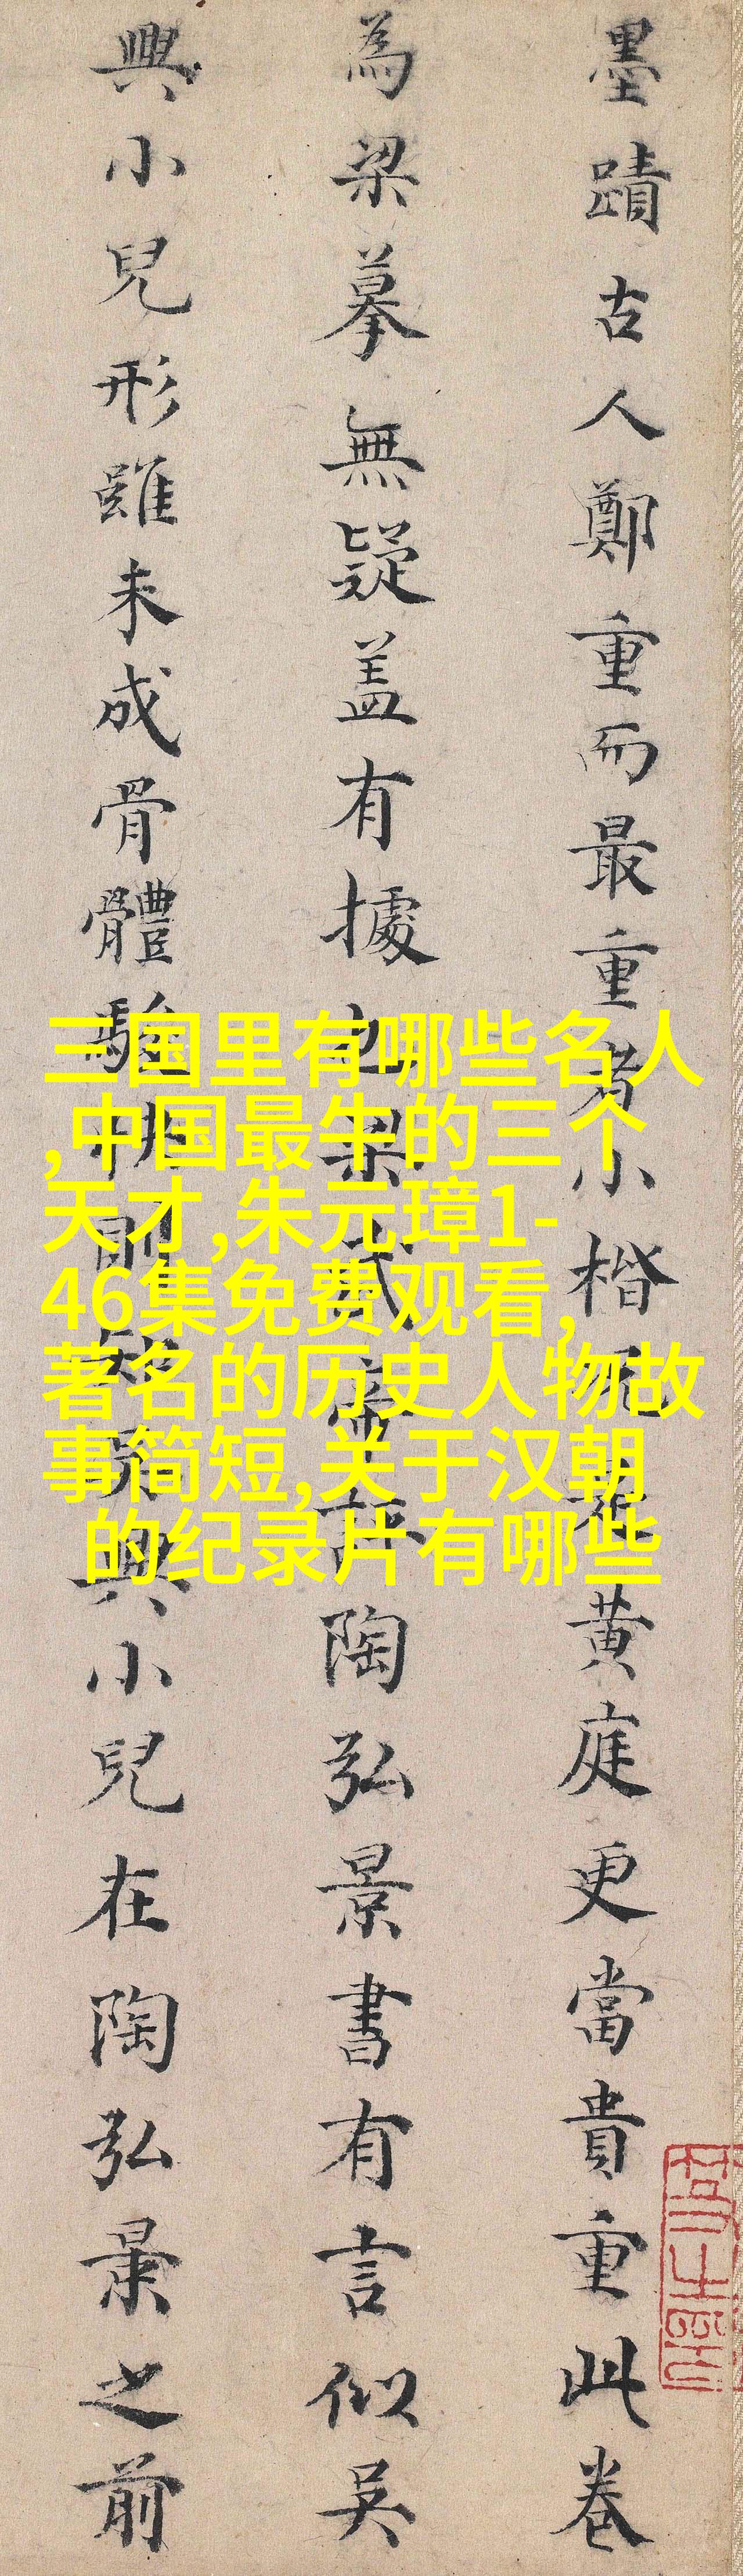 墨蹟古人鄭重而最重者小楷況黃庭更當貴重此卷
為梁摹無疑盖有據也梁武帝評陶弘景書有言似吳
興小兒形雖未成骨體駿快則知吳興小兒在陶弘景之前
三国里有哪些名人
,中国最牛的三个
天才,朱元璋1-
46集免费观看,
著名的历史人物故
事简短,关于汉朝
的纪录片有哪些